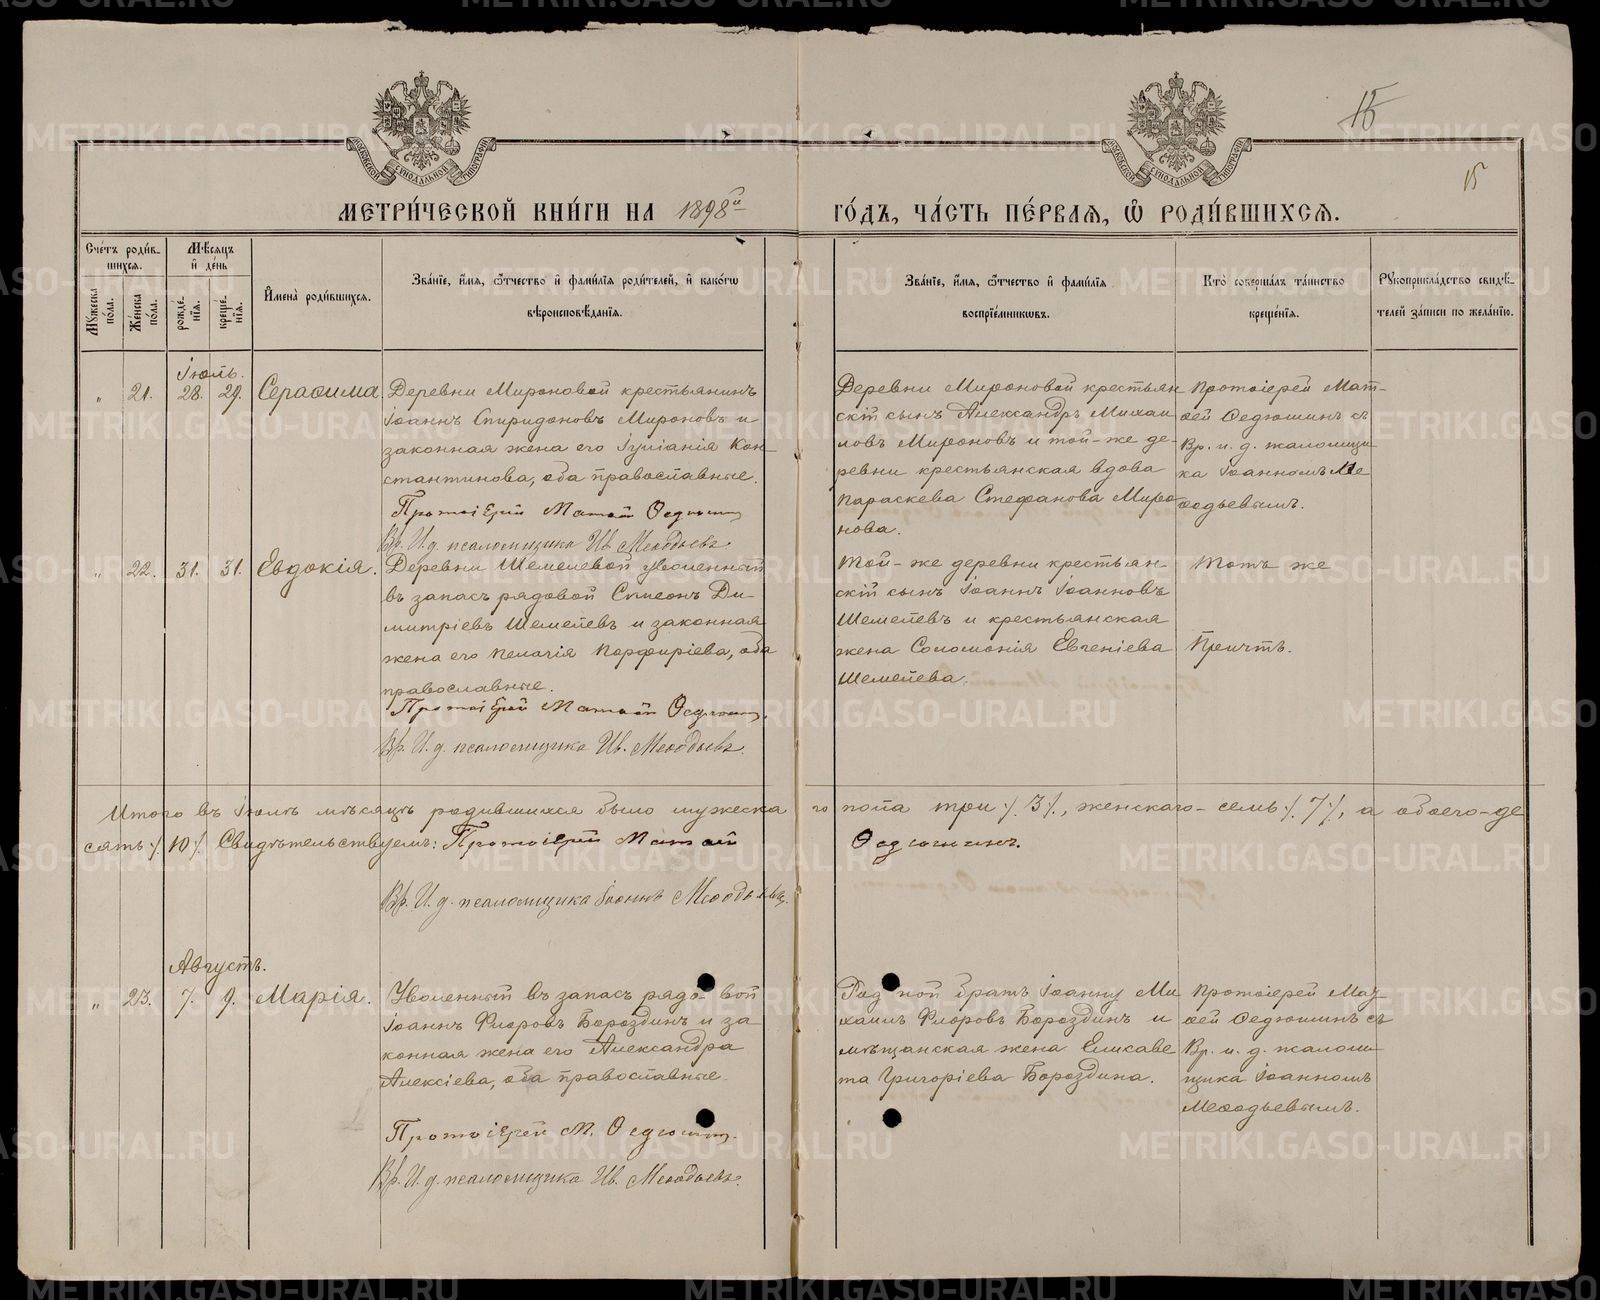 15
15
МЕТРИ́ЧЕСКОЙ КНИ́ГИ НА 1898й ГО́ДЪ, ЧА́СТЬ ПЕ́РВАЯ, Ѡ҆ РОДИ́ВШИХСЯ.
Сче́тъ роди́в-
шихся.
Мѣ́сяцъ
и҆ де́нь
Мꙋ́жеска по́ла.
Же́нска по́ла.
рожде-
нїѧ.
креще-
нїѧ.
И҆мена̀ роди́вшихся.
Зва́нїе, и҆́мя, ѻ҆́тчество и҆ фами́лїя роди́телей, и҆ како́гѡ
вѣроисповѣ́данїя.
Зва́нїе, и҆́мя, ѻ҆́тчество и҆ фами́лїя
воспрїе́мниковъ.
Кто̀ соверша́лъ та́инство
креще́нїя.
Рꙋкоприкла́дство свидѣ́-
телей за́писи по жела́нїю.
Іюль.
" 21. 28. 29. Серафима
Деревни Мироновой крестьянинъ
Іоаннъ Спиридоновъ Мироновъ и
законная жена его Іуліанія Кон-
стантинова, оба православные.
Протоіерей Матѳей Ѳедюшин
Вр. И. д. псаломщика Ив. Меѳодьевъ.
Деревни Мироновой крестьян
скій сынъ Александръ Михаи
ловъ Мироновъ и той-же де-
ревни крестьянская вдова
Параскева Стефанова Миро
нова.
Протоіерей Мат-
ѳей Ѳедюшинъ съ
Вр. и. д. псаломщи
ка Іоанномъ Ме
ѳодьевымъ.
" 22. 31. 31. Евдокія.
Деревни Шемелевой уволенный
въ запасъ рядовой Симеонъ Ди-
митріевъ Шемелевъ и законная
жена его Пелагія Порфиріева, оба
православные.
Протоіерей Матѳей Ѳедюшин.
Вр. И. д. псаломщика Ив. Меѳодьевъ.
Той-же деревни крестьян-
скій сынъ Іоаннъ Іоанновъ
Шемелевъ и крестьянская
жена Соломонія Евгеніева
Шемелева.
Тотъ же
Причтъ.
Итого въ Іюлѣ мѣсяцѣ родившихся было мужеска го пола три ./. 3 /., женскаго- семь ./. 7 /., а обоего-де
сять ./. 10 /. Свидѣтельствуемъ: Протоіерей Матѳей Ѳедюшинъ.
Вр. И. д. псаломщика Іоаннъ Меѳодьевъ.
Августъ.
" 23. 7. 9. Марія.
Уволенный въ запасъ рядо-вой
Іоаннъ Флоровъ Бороздинъ и за
конная жена его Александра
Алексіева, оба православные.
Протоіерей М. Ѳедюшин.
Вр. И. д. псаломщика Ив. Меѳодьевъ.
Род ной братъ Іоанну Ми
хаилъ Флоровъ Бороздинъ и
мѣщанская жена Елисаве
та Григоріева Бороздина.
Протоіерей Мат
ѳей Ѳедюшинъ съ
Вр. и. д. псалом
щика Іоанномъ
Меѳодьевымъ.
METRIKI.GASO-URAL.RU